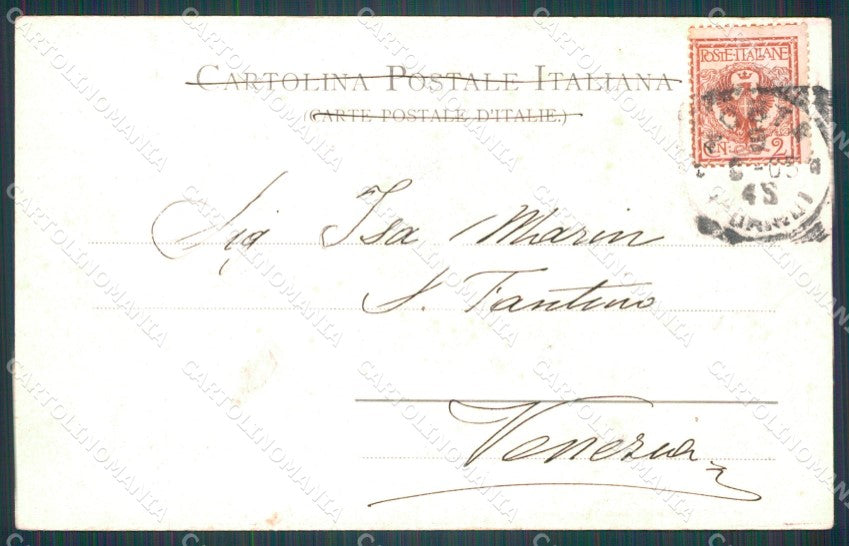 CARTOLINA POSTALE ITALIANA
(CARTE POSTALE D'ITALIE.)
POSTE ITALIANE
CEN. 2
45
Sig Isa Marin
S. Fantino
Venezia
CARTOLINOMANIA